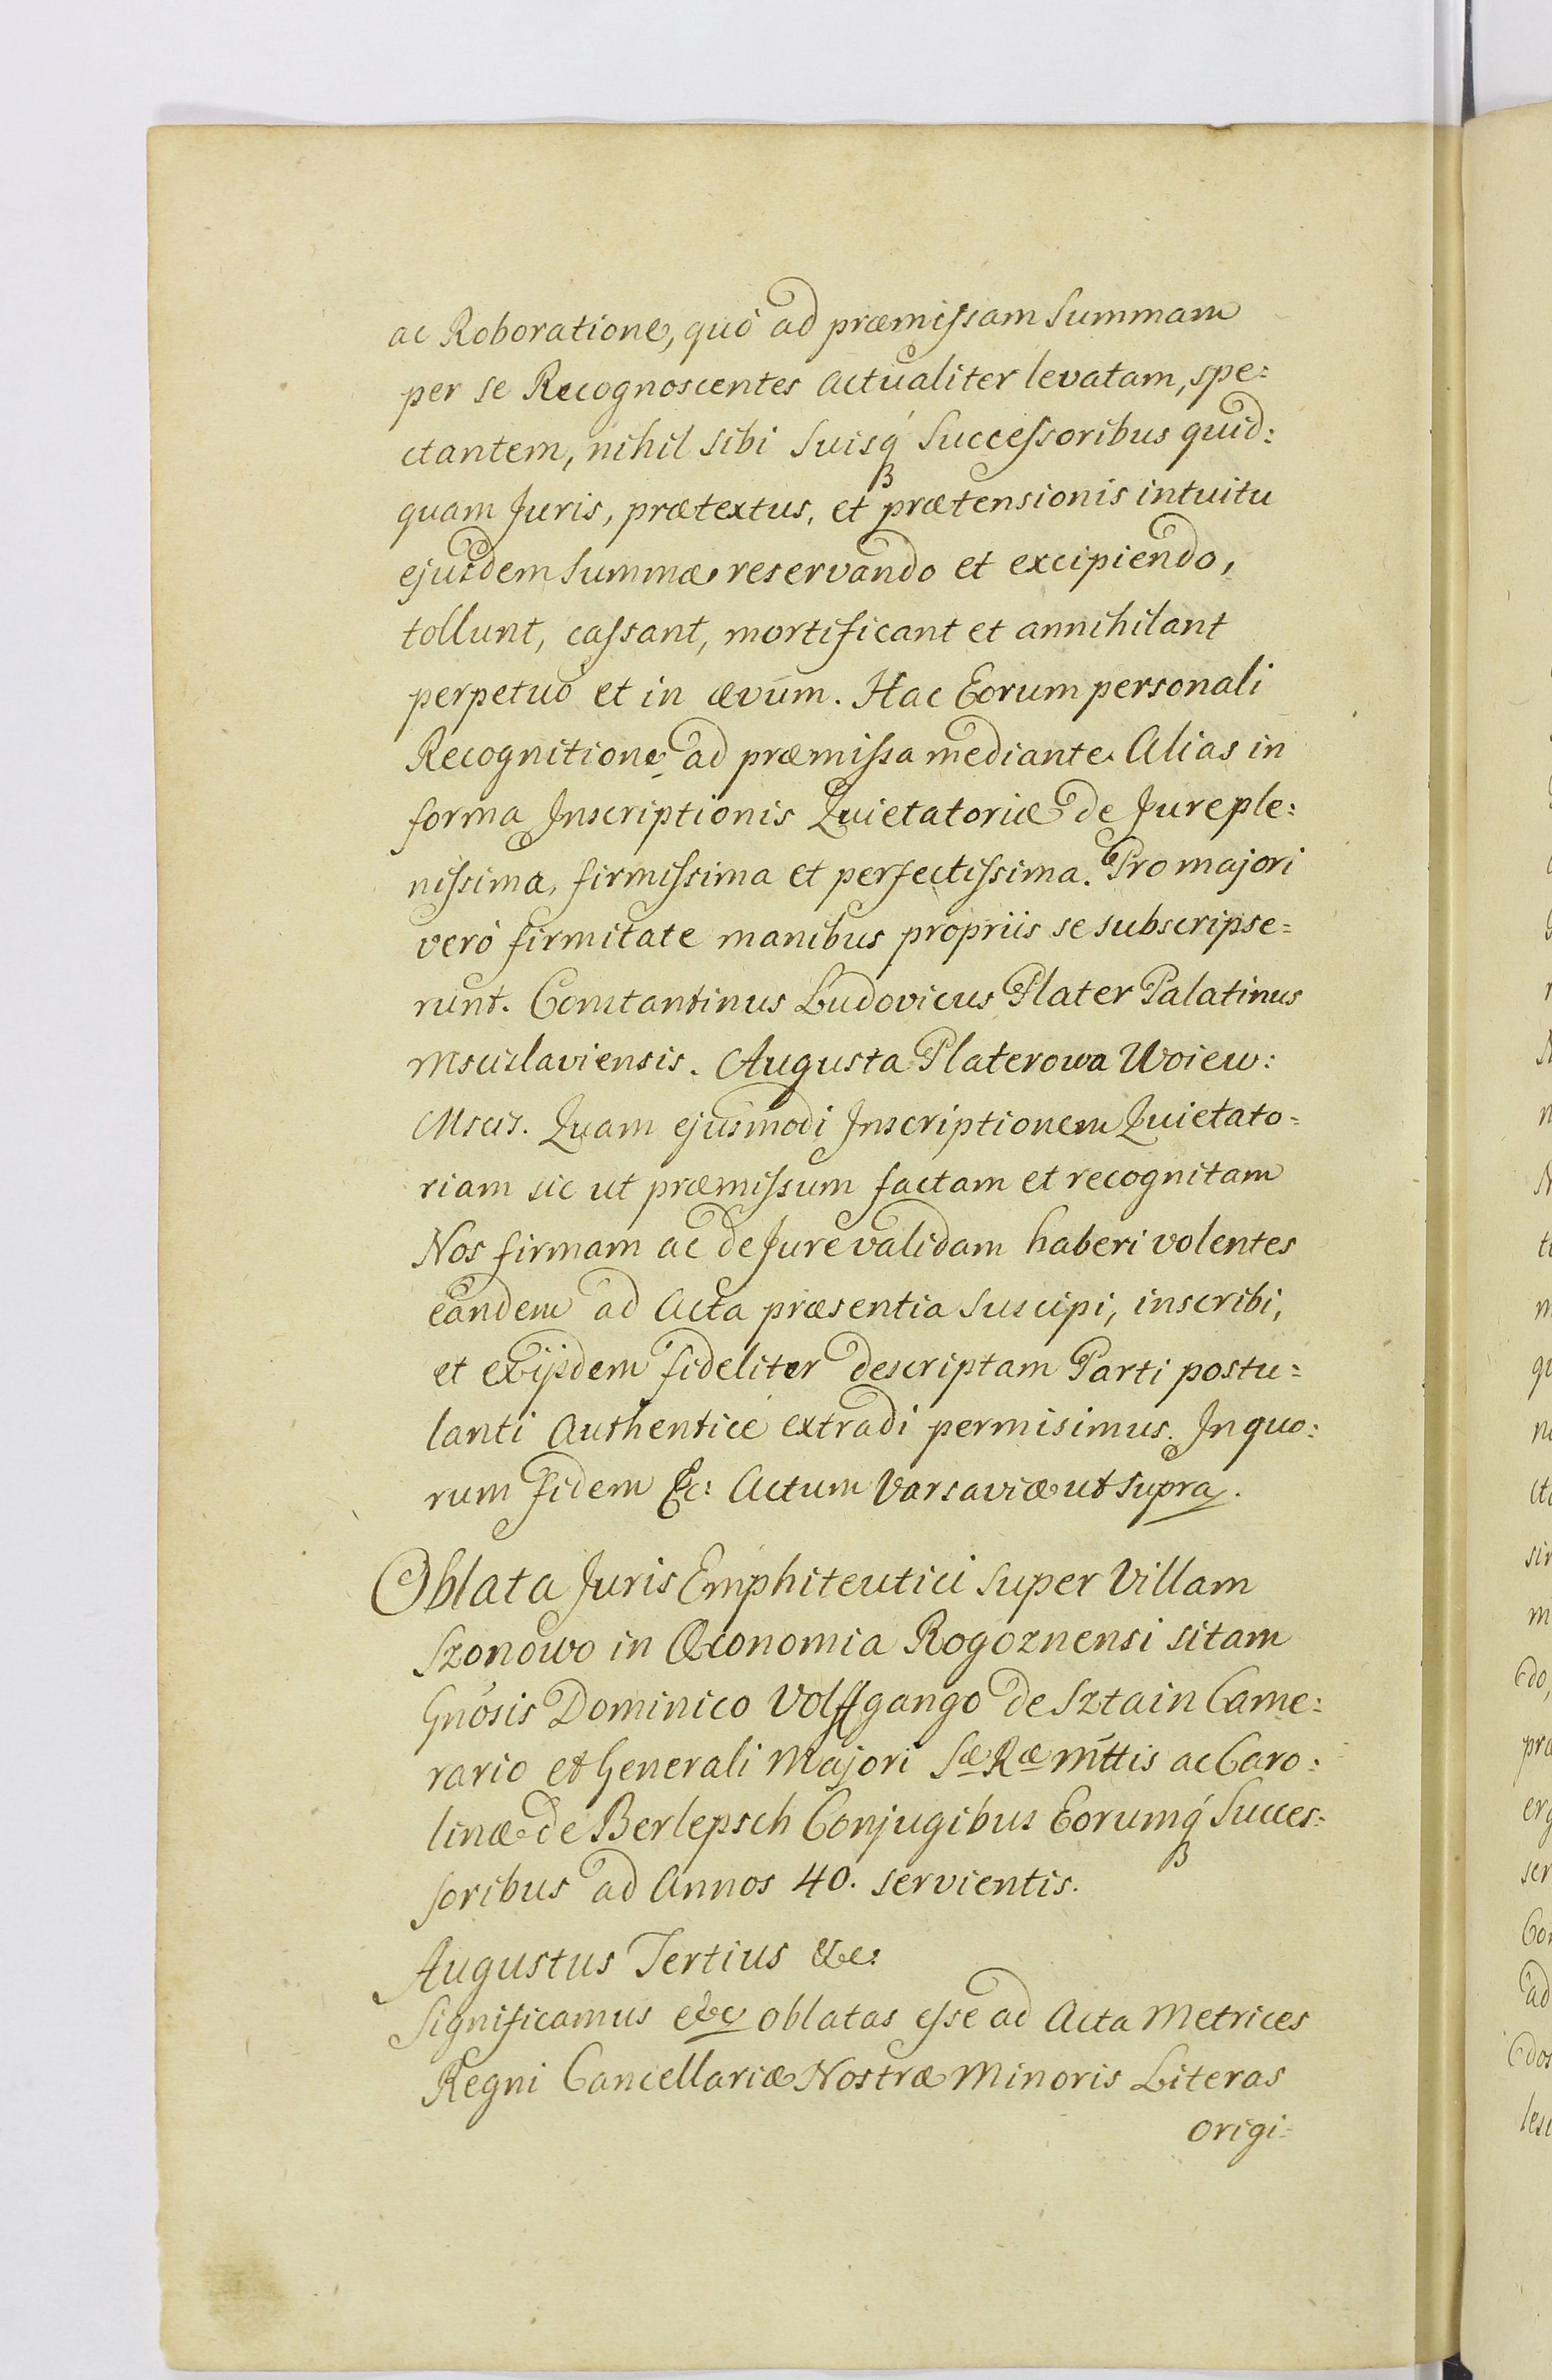 ac Roboratione, quò ad præmissam Summam
per se Recognoscentes actualiter levatam, spe=
ctantem, nihil sibi Suisq́ Successoribus quid=
quam Juris, prætextus, et prætensionis intuitu
ejusdem Summæ reservando et excipiendo,
tollunt, cassant, mortificant et annihilant
perpetuò et in ævum. Hac Eorum personali
Recognitione ad præmissa mediante. Alias in
forma Inscriptionis Quietatoriæ de Jure ple=
nissima, firmissima et perfectissima. Pro majori
verò firmitate manibus propriis se subscripse=
runt. Constantinus Ludovicus Plater Palatinus
Mscislaviensis. Augusta Platerowa Woiew:
Mscis. Quam ejusmodi Inscriptionem Quietato=
riam sic ut præmissum factam et recognitam
Nos firmam ac de Jure validam haberi volentes
eandem ad Acta præsentia Suscipi, inscribi,
et ex ijsdem fideliter descriptam Parti postu=
lanti Authenticè extradi permisimus. In quo=
rum fidem &c: Actum Varsaviæ ut supra.
Oblata Juris Emphiteutici super Villam
Szonowo in Œconomia Rogoznensi sitam
Gnosis Dominico Volffgango de Sztain Came=
rario et Generali Majori Sæ Ræ Mttis ac Caro=
linæ de Berlepsch Conjugibus Eorumq́ Succes=
soribus ad Annos 40. servientis.
Augustus Tertius &c:
Significamus &c oblatas esse ad Acta Metrices
Regni Cancellariæ Nostræ Minoris Literas
origi=